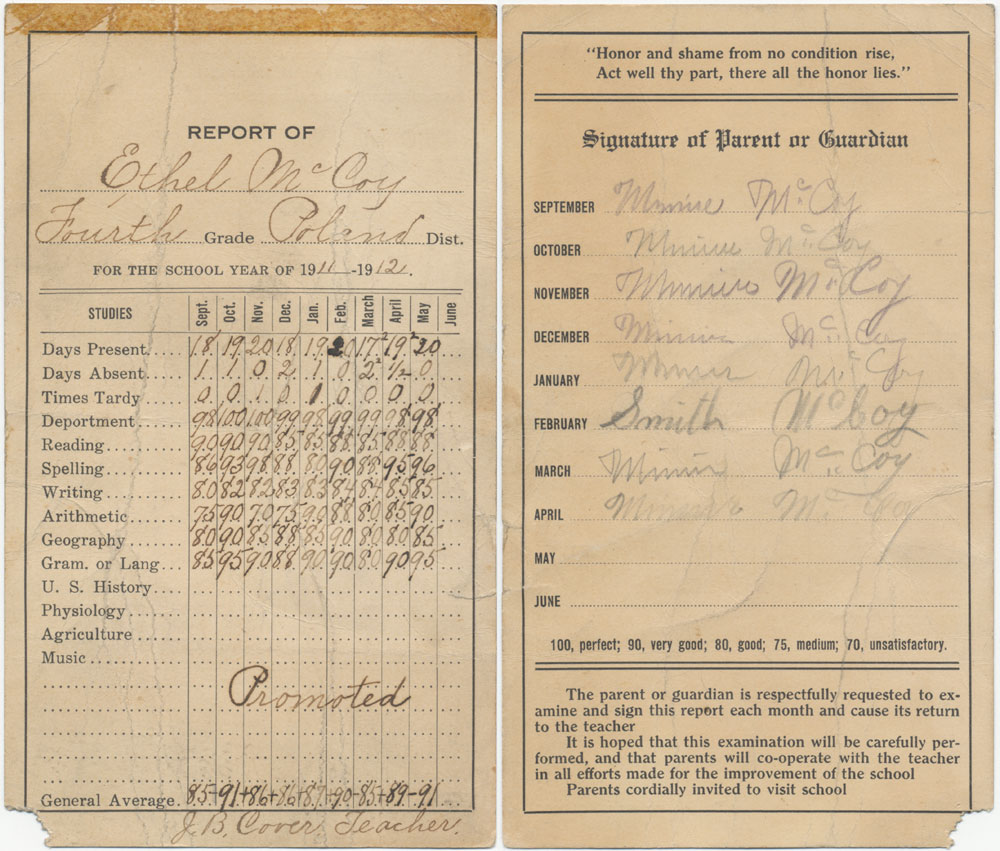 REPORT OF
Ethel McCoy
Fourth Grade Poland Dist.
FOR THE SCHOOL YEAR OF 1911-1912.
STUDIES Sept. Oct. Nov. Dec. Jan. Feb. March April May June
Days Present 18 19 20 18 19 20 17 19 20
Days Absent 1 1 0 2 1 0 2 1/2 0
Times Tardy 0 0 1 0 1 0 0 0 0
Deportment 98 100 100 99 98 99 99 98 98
Reading 90 90 90 85 85 88 85 88 88
Spelling 86 93 98 88 80 90 88 95 96
Writing 80 82 82 83 83 84 84 85 85
Arithmetic 75 90 70 75 90 88 80 85 90
Geography 80 90 85 88 85 90 80 80 85
Gram. or Lang 85 95 90 88 90 90 80 90 95
U. S. History
Physiology
Agriculture
Music
Promoted
General Average 85- 91+ 86+ 86+ 87+ 90- 85+ 89- 91
J. B. Cover Teacher.
"Honor and shame from no condition rise,
Act well thy part, there all the honor lies."
Signature of Parent or Guardian
SEPTEMBER Minnie McCoy
OCTOBER Minnie McCoy
NOVEMBER Minnie McCoy
DECEMBER Minnie McCoy
JANUARY Minnie McCoy
FEBRUARY Smith McCoy
MARCH Minnie McCoy
APRIL Minnie McCoy
MAY
JUNE
100, perfect; 90, very good; 80, good; 75, medium; 70, unsatisfactory.
The parent or guardian is respectfully requested to ex-
amine and sign this report each month and cause its return
to the teacher
It is hoped that this examination will be carefully per-
formed, and that parents will co-operate with the teacher
in all efforts made for the improvement of the school
Parents cordially invited to visit school